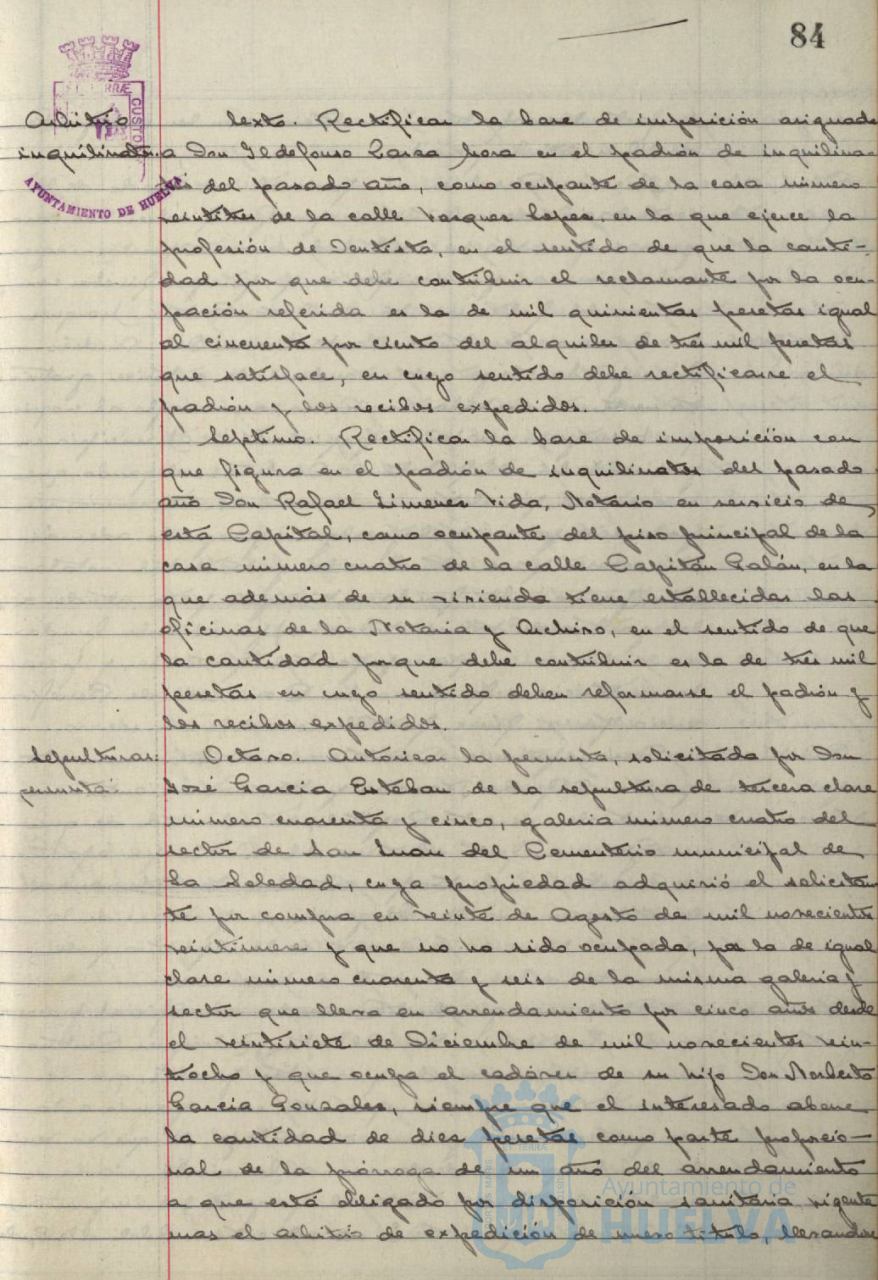 84
Arbitrio
inquilinatos.
AYUNTAMIENTO DE HUELVA
CUSTO
Sexto. Rectificar la base de imposición asignada
a Don Ildefonso Larra Mora en el padrón de inquilina-
tos del pasado año, como ocupante de la casa número
veintitres de la calle Vazquez Lopez, en la que ejerce la
profesión de Dentista, en el sentido de que la canti-
dad por que debe contribuir el reclamante por la ocu-
pación referida es la de mil quinientas pesetas igual
al cincuenta por ciento del alquiler de tres mil pesetas
que satisface, en cuyo sentido debe rectificarse el
padrón y los recibos expedidos.
Septimo. Rectificar la base de imposición con
que figura en el padrón de inquilinatos del pasado
año Don Rafael Gimenez Vida, Notario en servicio de
esta Capital, como ocupante del piso principal de la
casa número cuatro de la calle Capitán Galán, en la
que además de su vivienda tiene establecidas las
oficinas de la Notaria y Archivo, en el sentido de que
la cantidad porque debe contribuir es la de tres mil
pesetas en cuyo sentido deben reformarse el padrón y
los recibos expedidos.
Sepulturas:
permuta.
Octavo. Autorizar la permuta, solicitada por Don
José Garcia Esteban de la sepultura de tercera clase
número cuarenta y cinco, galeria número cuatro del
sector de San Juan del Cementerio municipal de
La Soledad, cuya propiedad adquirió el solicitan
te por compra en veinte de Agosto de mil novecientos
veintinueve y que no ha sido ocupada, por la de igual
clase número cuarenta y seis de la misma galeria y
sector que lleva en arrendamiento por cinco años desde
el veintisiete de Diciembre de mil novecientos vein-
tiocho y que ocupa el cadáver de su hijo Don Norberto
Garcia Gonzales, siempre que el interesado abone
la cantidad de diez pesetas como parte proporcio-
nal de la prórroga de un año del arrendamiento
a que está obligado por disposición sanitaria vigente
mas el arbitrio de expedición de nuevo titulo, llevandose
Ayuntamiento de
HUELVA